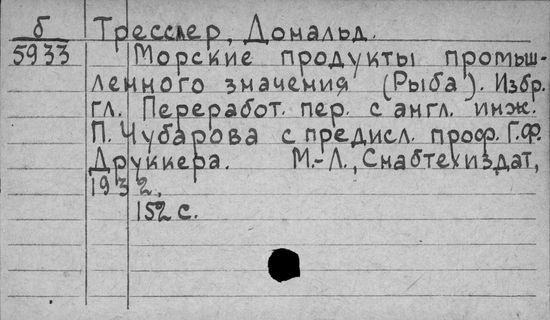 б Тресслер, Дональд.
5933 Морские продукты промыш-
ленного значения (Рыба). Избр.
гл. Переработ. пер. с англ. инж.
П. Чубарова с предисл. проф. Г.Ф.
Друккера. М.-Л., Снабтехиздат,
1932.
152 с.